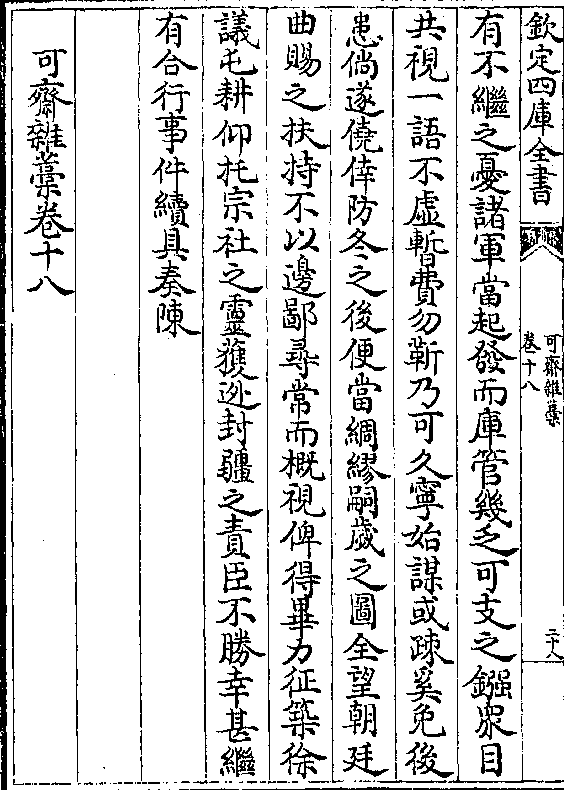 欽定四庫全書
可齋雜藁
卷十八
二十八
有不繼之憂諸軍當起發而庫管幾乏可支之鏹衆目
共視一語不虛暫費勿靳乃可久寧始謀或疎奚免後
患倘遂僥倖防冬之後便當綢繆嗣歲之圖全望朝廷
曲賜之扶持不以邊鄙尋常而概視俾得畢力征築徐
議屯耕仰托宗社之靈獲逃封疆之責臣不勝幸甚繼
有合行事件續具奏陳
可齋雜藁卷十八